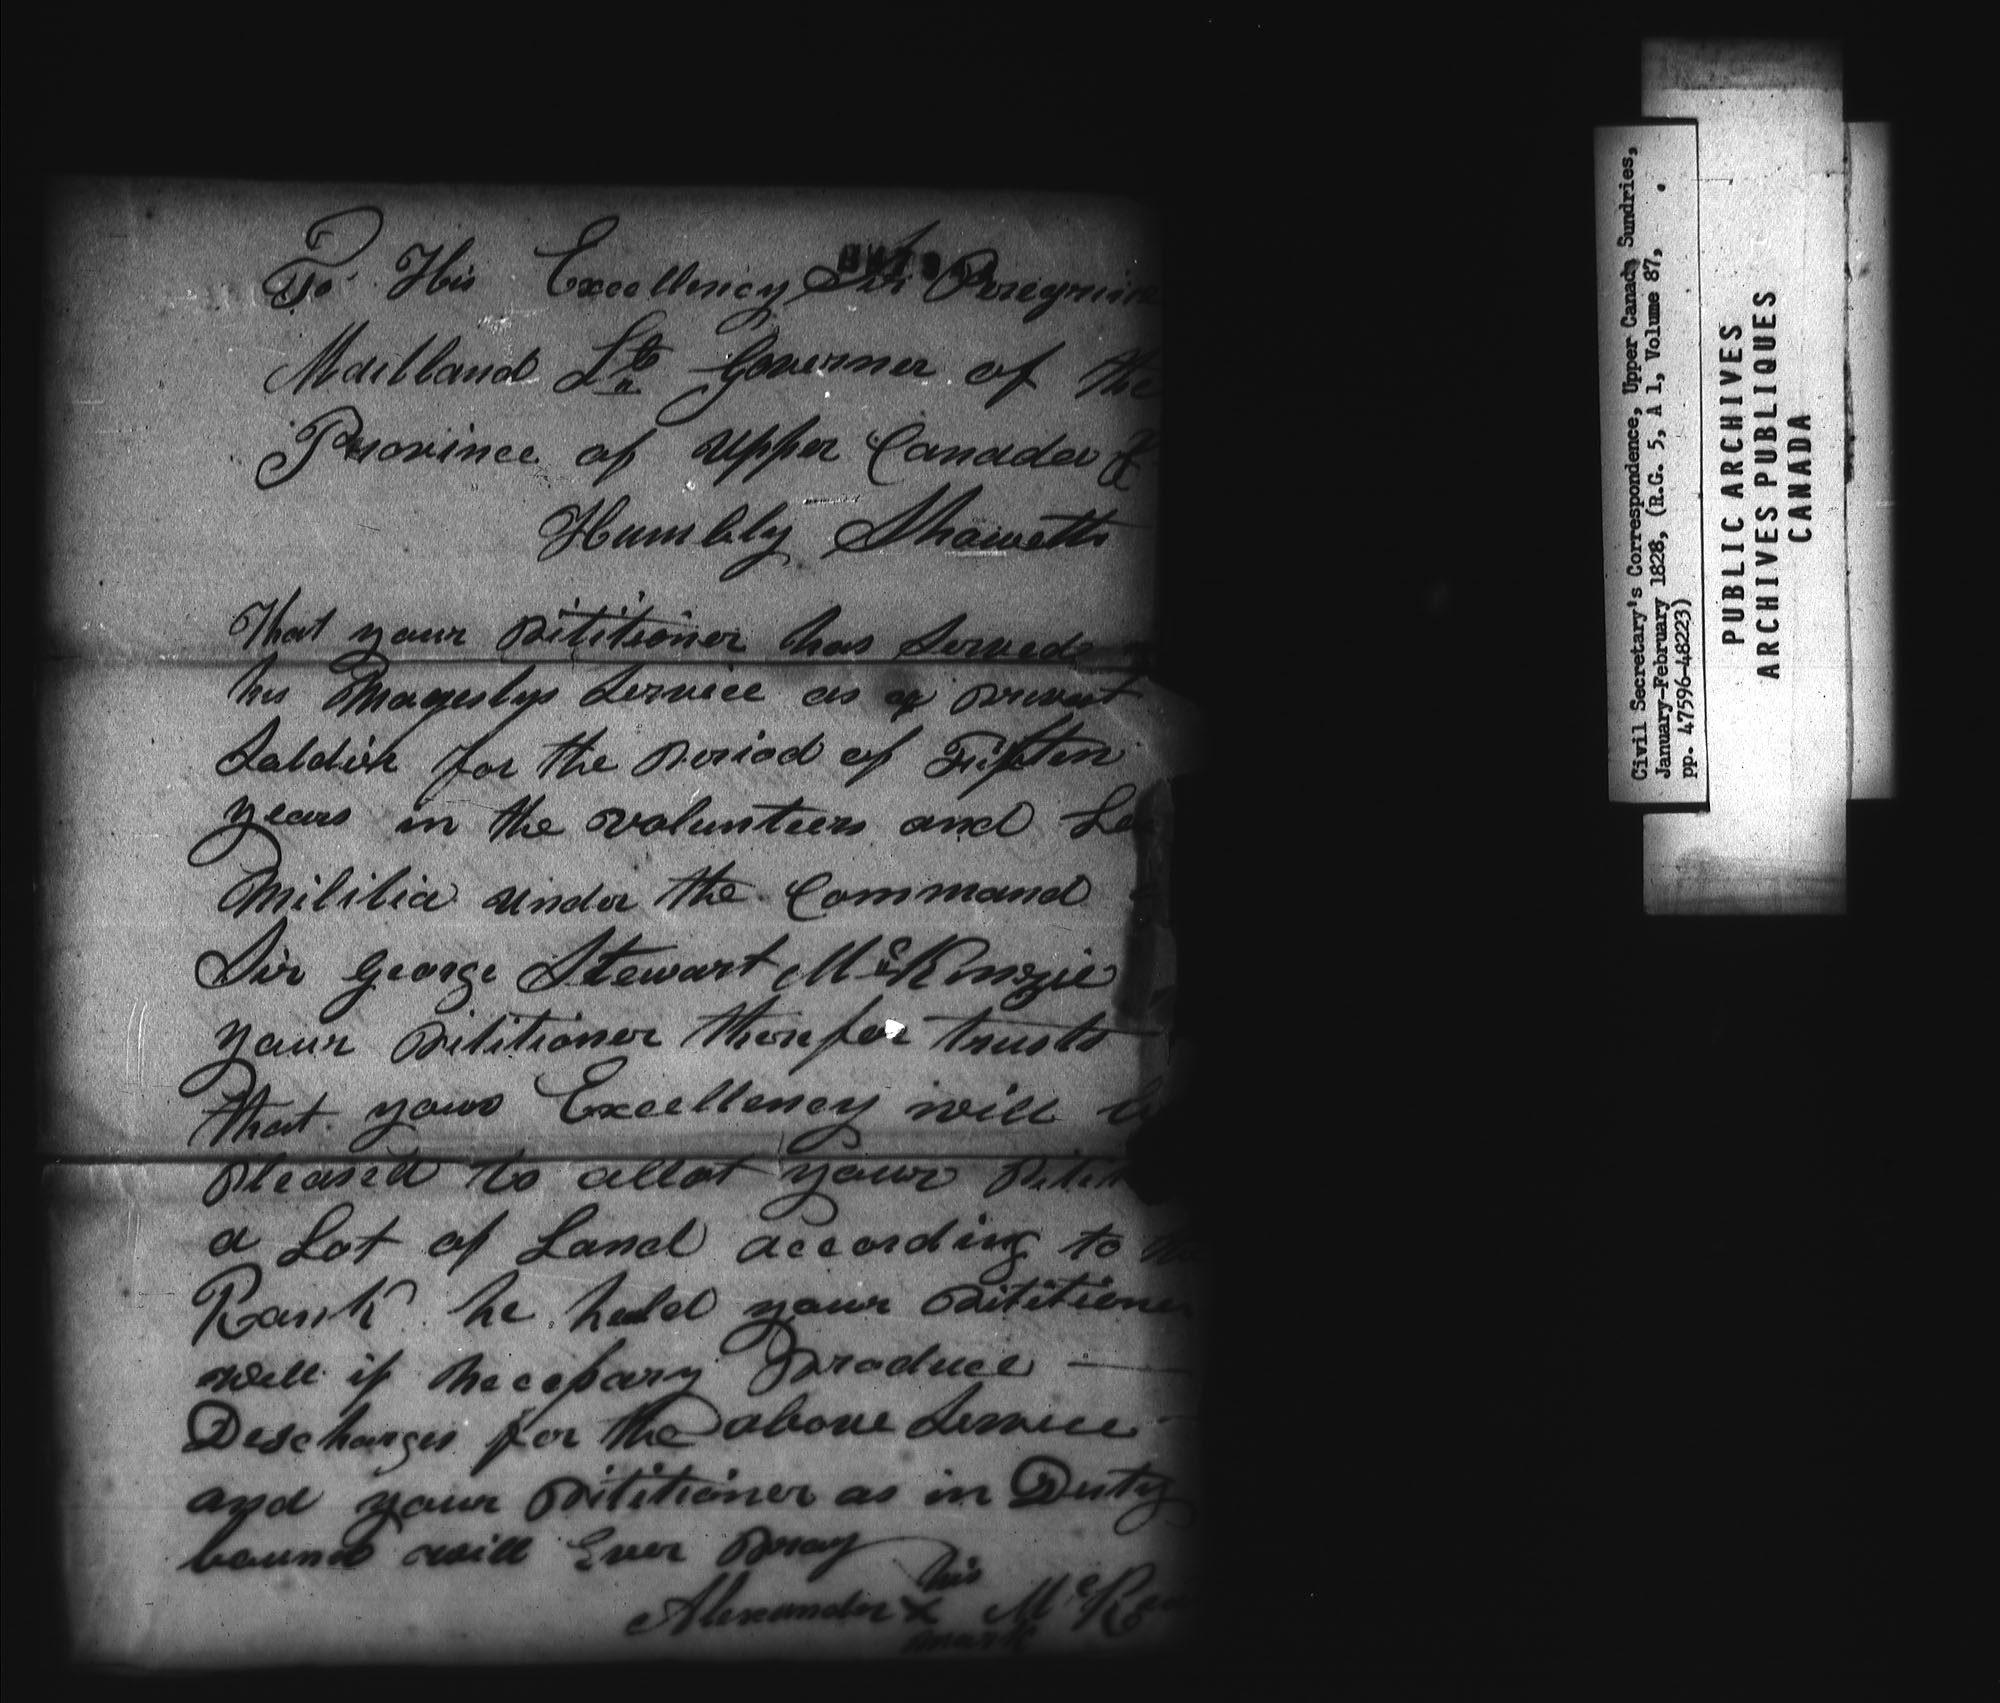 To His Excellency Sir Peregrine
Maitland Lt Governer of the
Province of Upper Canada &
Humbly Shaweth
That your Pititioner has Served
his Magestys Service as a Privat
Soldier for the Period of Fifteen
years in the volunteers and
Militia under the Command
Sir George Stewart McKinzie
your Pititioner therefor trusts
that your Excellency will
Pleased to allot your
a Lot of Land according to the
Rank he held your Pititioner
will if Necessary Produce —
Descharges for the above Service
and your Pititioner as in Duty
bound will Ever Pray
his
Alexander X
mark
Civil Secretary's Correspondence, Upper Canada Sundries,
January-February 1828, (R.G. 5, A 1, Volume 87,
pp. 47596-48223)
PUBLIC ARCHIVES
ARCHIVES PUBLIQUES
CANADA